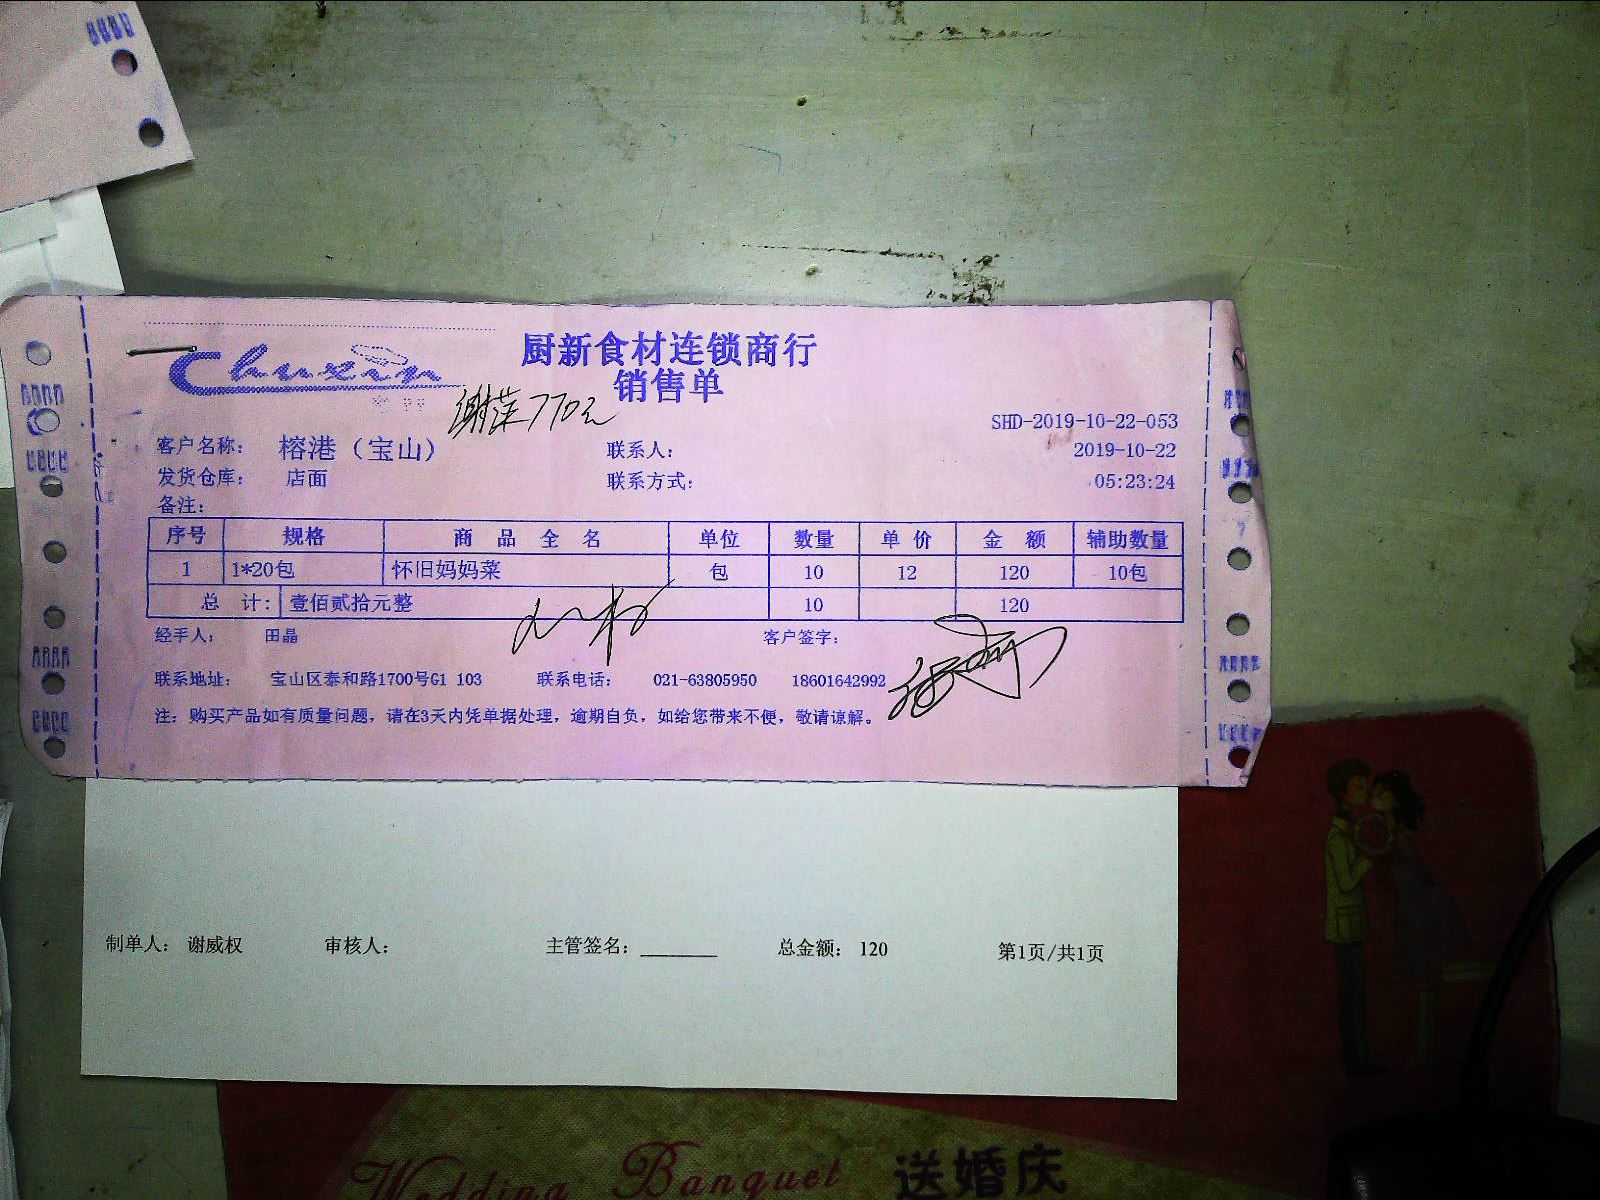 Chuxin
厨新食材连锁商行
销售单
770元
SHD-2019-10-22-053
客户名称: 榕港（宝山） 联系人: 2019-10-22
发货仓库: 店面 联系方式: 05:23:24
备注:
序号 规格 商 品 全 名 单位 数量 单 价 金 额 辅助数量
1 1*20包 怀旧妈妈菜 包 10 12 120 10包
总 计: 壹佰贰拾元整 10 120
经手人: 田晶 客户签字:
联系地址: 宝山区泰和路1700号G1 103 联系电话: 021-63805950 18601642992
注: 购买产品如有质量问题, 请在3天内凭单据处理, 逾期自负, 如给您带来不便, 敬请谅解。
制单人: 谢威权 审核人: 主管签名: 总金额: 120 第1页/共1页
Wedding Banquet 送婚庆